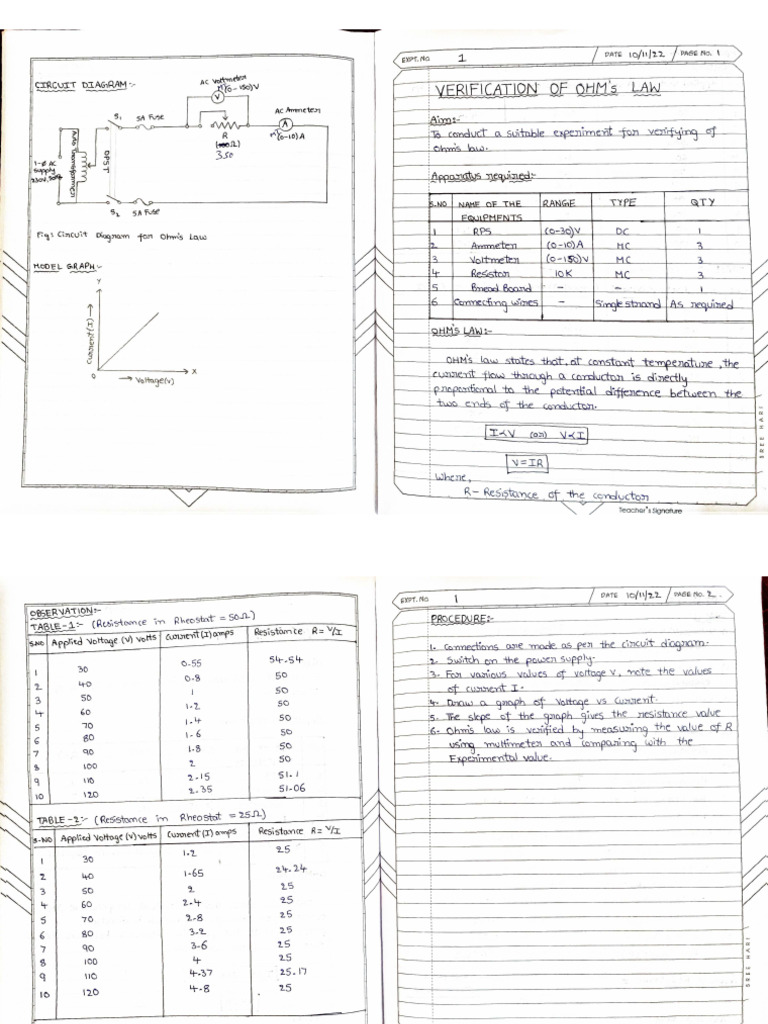 CIRCUIT DIAGRAM:-
AC Voltmeter
(0-150)V
V
AC Ammeter
A
(0-10)A
S₁
5A Fuse
R
350
1-ø AC
supply
Auto transformer
DPST
S₂
5A Fuse
Fig: Circuit Diagram for Ohm's Law
MODEL GRAPH:-
Y
Current(I)
O
X
Voltage(V)
EXPT. NO. 1
DATE 10/11/22
PAGE NO. 1
VERIFICATION OF OHM's LAW
Aim:-
To conduct a suitable experiment for verifying of
Ohm's law.
Apparatus required:-
S.NO NAME OF THE EQUIPMENTS RANGE TYPE QTY
1 RPS (0-30)V DC 1
2 Ammeter (0-10)A MC 3
3 Voltmeter (0-150)V MC 3
4 Resistor 10K MC 3
5 Bread Board - - 1
6 Connecting wires - Single strand As required
OHM'S LAW:-
OHM's law states that, at constant temperature, the
current flow through a conductor is directly
proportional to the potential difference between the
two ends of the conductor.
I∝V (or) V∝I
V=IR
Where,
R- Resistance of the conductor
Teacher's Signature
SREE HARI
OBSERVATION:-
TABLE-1:- (Resistance in Rheostat = 50Ω)
S.NO Applied Voltage (V) volts Current(I) amps Resistance R= V/I
1 30 0.55 54.54
2 40 0.8 50
3 50 1 50
4 60 1.2 50
5 70 1.4 50
6 80 1.6 50
7 90 1.8 50
8 100 2 50
9 110 2.15 51.1
10 120 2.35 51.06
TABLE-2:- (Resistance in Rheostat = 25Ω)
S.NO Applied Voltage (V) volts Current (I) amps Resistance R= V/I
1 30 1.2 25
2 40 1.65 24.24
3 50 2 25
4 60 2.4 25
5 70 2.8 25
6 80 3.2 25
7 90 3.6 25
8 100 4 25
9 110 4.37 25.17
10 120 4.8 25
EXPT. NO. 1
DATE 10/11/22
PAGE NO. 2.
PROCEDURE:-
1. Connections are made as per the circuit diagram.
2. Switch on the power supply.
3. For various values of voltage V, note the values
of current I.
4. Draw a graph of voltage vs current.
5. The slope of the graph gives the resistance value
6. Ohm's law is verified by measuring the value of R
using multimeter and comparing with the
Experimental value.
SREE HARI